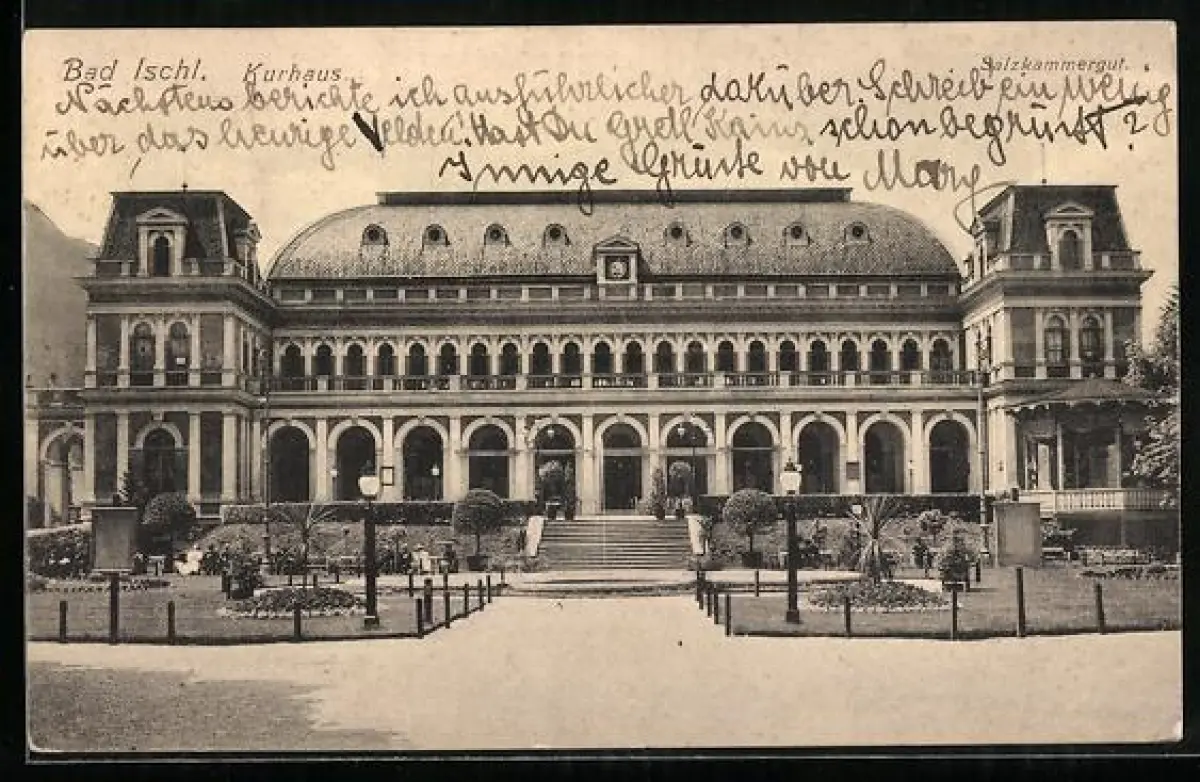 Bad Ischl. Kurhaus. Salzkammergut.
Nächstens berichte ich ausführlicher darüber. Schreib ein wenig
über das heurige Velden. Hast Du Gretl Kainz schon begrüßt?
Innige Grüsse von Mary